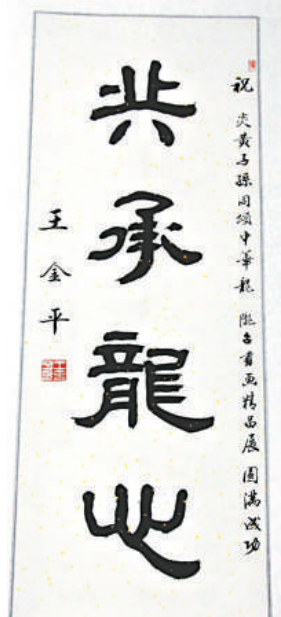 祝 炎黄子孫同頌中華龍 陇台書画精品展 圓滿成功
共承龍心
王金平